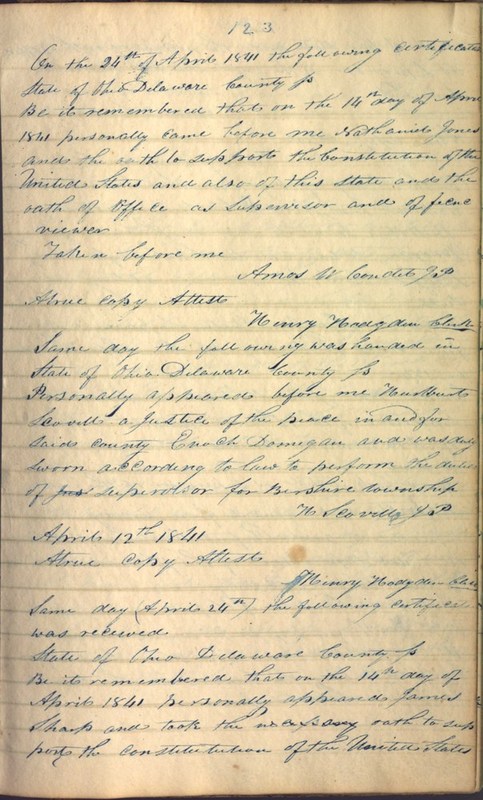 123
On the 24th of April 1841 the following certificate
State of Ohio Delaware County ss
Be it remembered that on the 14th day of April
1841 personally came before me Nathaniel Jones
and the oath to support the Constitution of the
United States and also of this State and the
oath of Office as Supervisor and of fence
viewer
Taken before me
Amos W Condit JP
Atrue copy Attest
Henry Hodgden Clerk
Same day the following was handed in
State of Ohio Delaware County ss
Personally appeared before me Hurlburt
Scovell a Justice of the peace in and for
said county Enoch Domigan and was duly
sworn according to law to perform the duties
of supervisor for Berkshire township
H Scovell JP
April 12th 1841
Atrue copy Attest
Henry Hodgden Clerk
Same day (April 24th) the following certificat
was received
State of Ohio Delaware County ss
Be it remembered that on the 14th day of
April 1841 personally appeared James
Sharp and took the necessary oath to sup
port the constitution of the United States